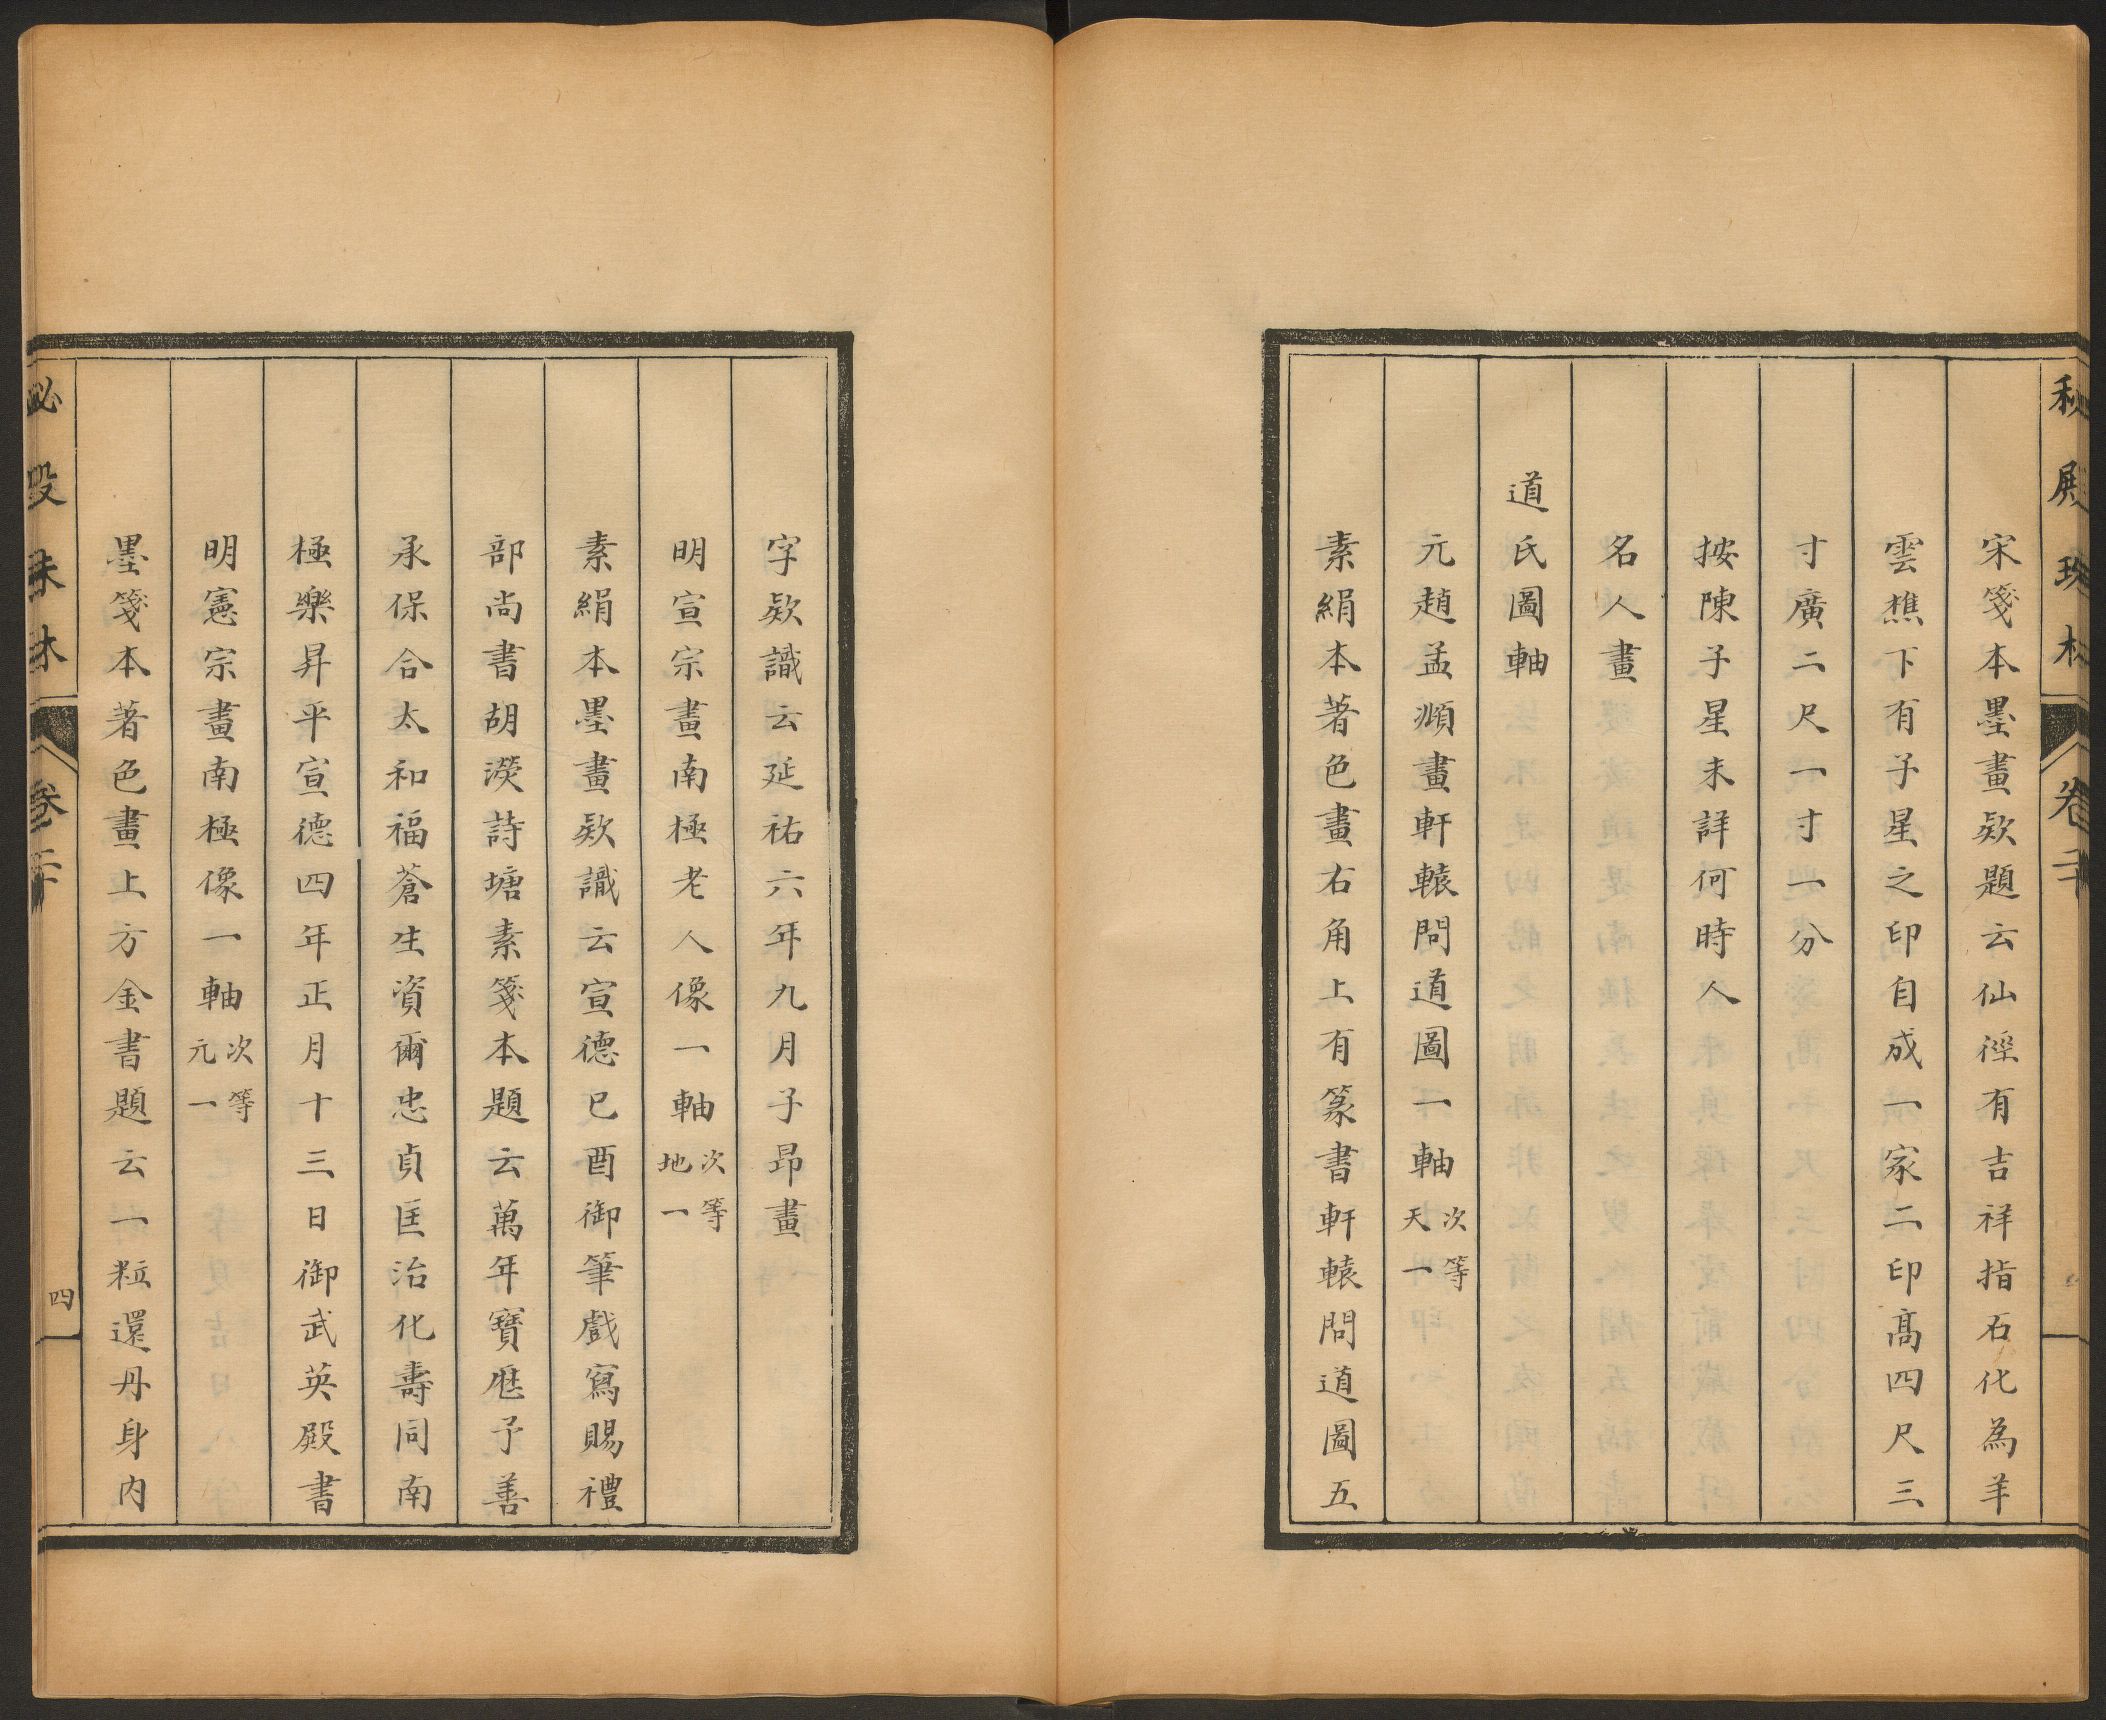 秘殿珠林 卷二十
宋箋本墨畫欵題云仙徑有吉祥指石化為羊
雲樵下有子星之印自成一家二印高四尺三
寸廣二尺一寸一分
按陳子星未詳何時人
名人畫
道氏圖軸
元趙孟頫畫軒轅問道圖一軸次等天一
素絹本著色畫右角上有篆書軒轅問道圖五
字欵識云延祐六年九月子昂畫
明宣宗畫南極老人像一軸次等地一
素絹本墨畫欵識云宣德己酉御筆戲寫賜禮
部尚書胡濙詩塘素箋本題云萬年寶歷予善
承保合太和福蒼生資爾忠貞匡治化壽同南
極樂昇平宣德四年正月十三日御武英殿書
明憲宗畫南極像一軸次等元一
墨箋本著色畫上方金書題云一粒還丹身內
秘殿珠林 卷二十 四